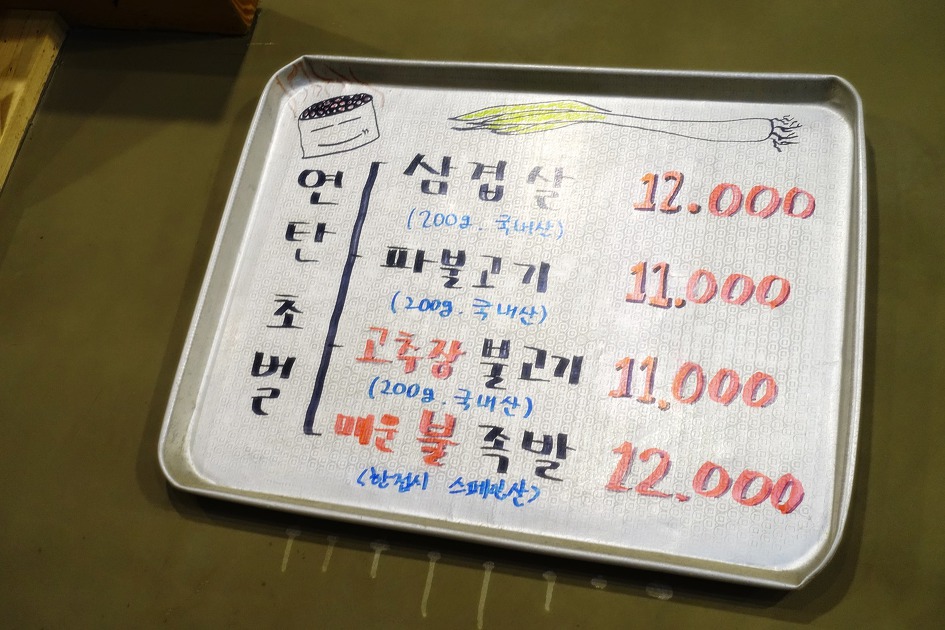 연탄초벌
삼겹살 12.000
(200g. 국내산)
파불고기 11.000
(200g. 국내산)
고추장 불고기 11.000
(200g. 국내산)
매운 불 족발 12.000
<한접시 스페인산>